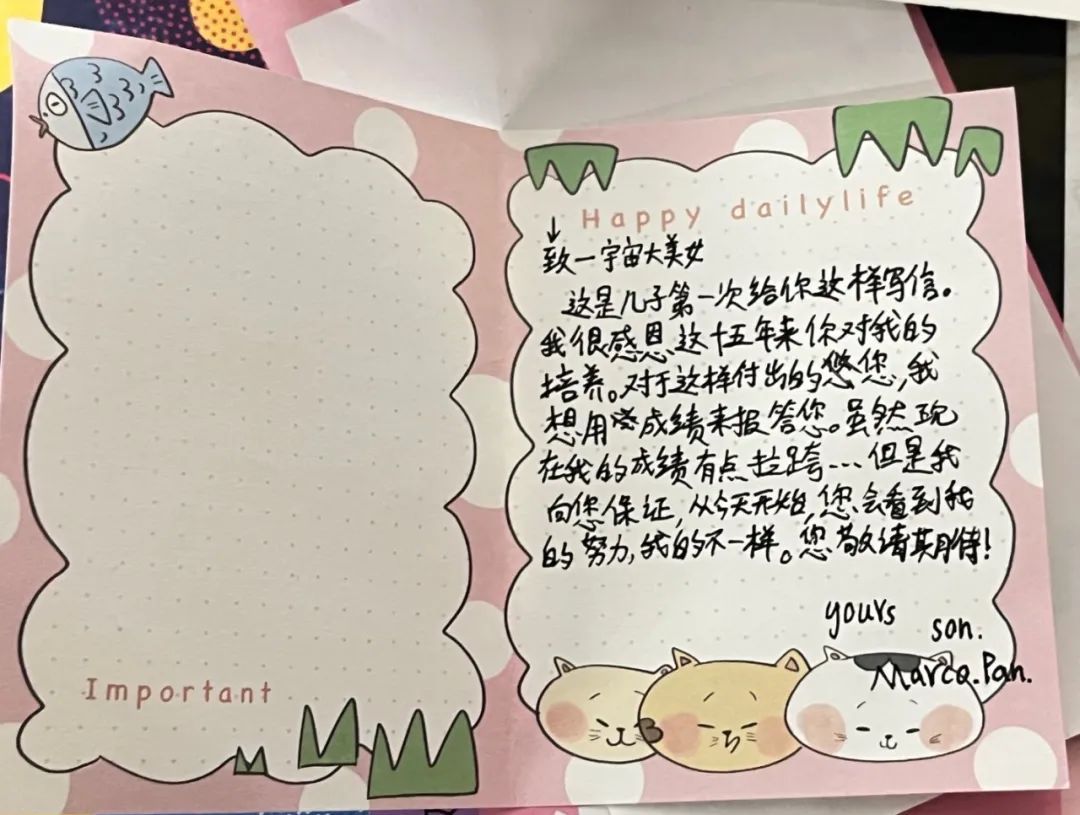 Important
Happy dailylife
致一宇宙大美女
这是儿子第一次给你这样写信。
我很感恩这十五年来你对我的
培养。对于这样付出的您,我
想用成绩来报答您。虽然现
在我的成绩有点拉跨...但是我
向您保证,从今天开始,您会看到我
的努力,我的不一样。您敬请期待!
yours son.
Marco.Pan.